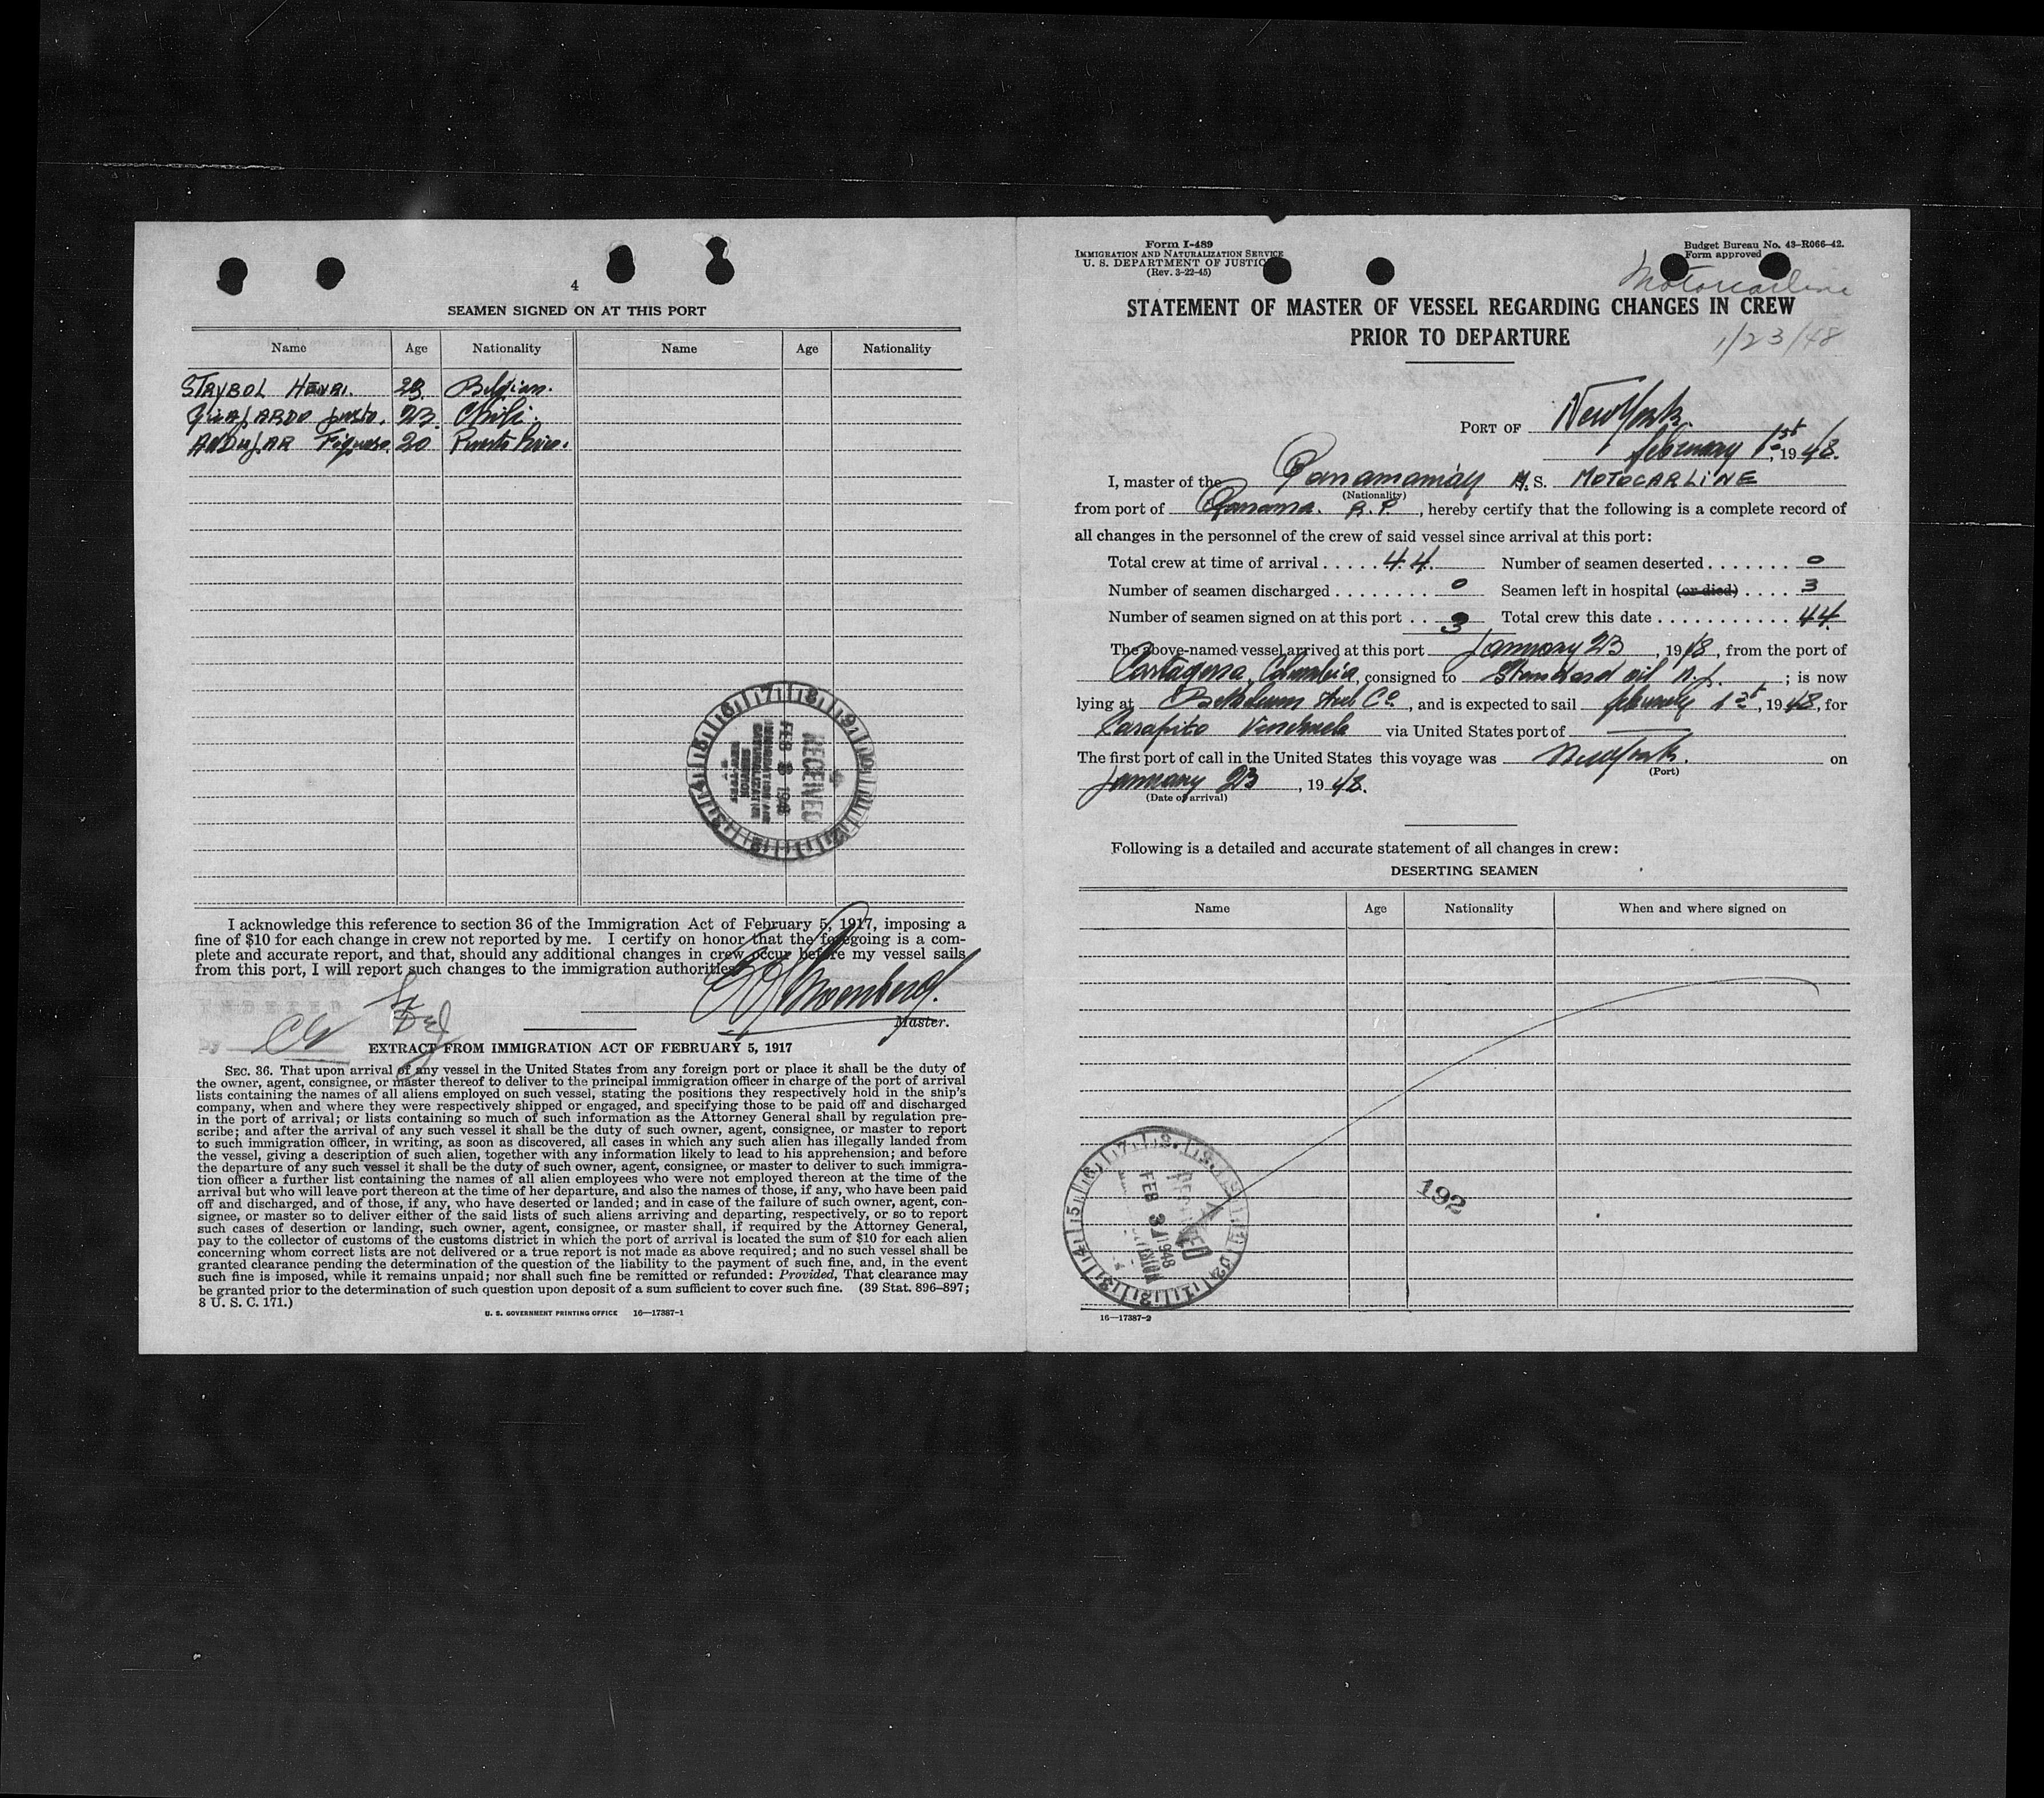 4
SEAMEN SIGNED ON AT THIS PORT
Name Age Nationality Name Age Nationality
STRYBOL HENRI. 23. Belgian.
GUAJARDO Justo. 23. Chili.
ANDUJAR Figueroa. 20 Puerto Rico.
RECEIVED
FEB 3 1948
IMMIGRATION AND
NATURALIZATION
SERVICE
I acknowledge this reference to section 36 of the Immigration Act of February 5, 1917, imposing a
fine of $10 for each change in crew not reported by me. I certify on honor that the foregoing is a com-
plete and accurate report, and that, should any additional changes in crew occur before my vessel sails
from this port, I will report such changes to the immigration authorities.
Master.
EXTRACT FROM IMMIGRATION ACT OF FEBRUARY 5, 1917
SEC. 36. That upon arrival of any vessel in the United States from any foreign port or place it shall be the duty of
the owner, agent, consignee, or master thereof to deliver to the principal immigration officer in charge of the port of arrival
lists containing the names of all aliens employed on such vessel, stating the positions they respectively hold in the ship's
company, when and where they were respectively shipped or engaged, and specifying those to be paid off and discharged
in the port of arrival; or lists containing so much of such information as the Attorney General shall by regulation pre-
scribe; and after the arrival of any such vessel it shall be the duty of such owner, agent, consignee, or master to report
to such immigration officer, in writing, as soon as discovered, all cases in which any such alien has illegally landed from
the vessel, giving a description of such alien, together with any information likely to lead to his apprehension; and before
the departure of any such vessel it shall be the duty of such owner, agent, consignee, or master to deliver to such immigra-
tion officer a further list containing the names of all alien employees who were not employed thereon at the time of the
arrival but who will leave port thereon at the time of her departure, and also the names of those, if any, who have been paid
off and discharged, and of those, if any, who have deserted or landed; and in case of the failure of such owner, agent, con-
signee, or master so to deliver either of the said lists of such aliens arriving and departing, respectively, or so to report
such cases of desertion or landing, such owner, agent, consignee, or master shall, if required by the Attorney General,
pay to the collector of customs of the customs district in which the port of arrival is located the sum of $10 for each alien
concerning whom correct lists are not delivered or a true report is not made as above required; and no such vessel shall be
granted clearance pending the determination of the question of the liability to the payment of such fine, and, in the event
such fine is imposed, while it remains unpaid; nor shall such fine be remitted or refunded: Provided, That clearance may
be granted prior to the determination of such question upon deposit of a sum sufficient to cover such fine. (39 Stat. 896–897;
8 U. S. C. 171.)
U. S. GOVERNMENT PRINTING OFFICE 16—17387-1
Form I-489
IMMIGRATION AND NATURALIZATION SERVICE
U. S. DEPARTMENT OF JUSTICE
(Rev. 3-22-45)
Budget Bureau No. 43-R066-42.
Form approved
Motorcarline
1/23/48
STATEMENT OF MASTER OF VESSEL REGARDING CHANGES IN CREW
PRIOR TO DEPARTURE
PORT OF New York.
february 1st, 1948.
I, master of the Panamamian M. S. MOTOCARLINE
(Nationality)
from port of Panama. R.P., hereby certify that the following is a complete record of
all changes in the personnel of the crew of said vessel since arrival at this port:
Total crew at time of arrival ..... 44. Number of seamen deserted ....... 0
Number of seamen discharged ........ 0 Seamen left in hospital (or died) .... 3
Number of seamen signed on at this port .. 3 Total crew this date ........... 44.
The above-named vessel arrived at this port January 23, 1948, from the port of
Cartagena, Columbia, consigned to Standard oil N.J.; is now
lying at Bethlehem Steel Co, and is expected to sail february 1st, 1948, for
Carapito Venezuela via United States port of
The first port of call in the United States this voyage was New York. on
(Port)
January 23, 1948.
(Date of arrival)
Following is a detailed and accurate statement of all changes in crew:
DESERTING SEAMEN
Name Age Nationality When and where signed on
192
RECEIVED
FEB 3 1948
16—17387-2